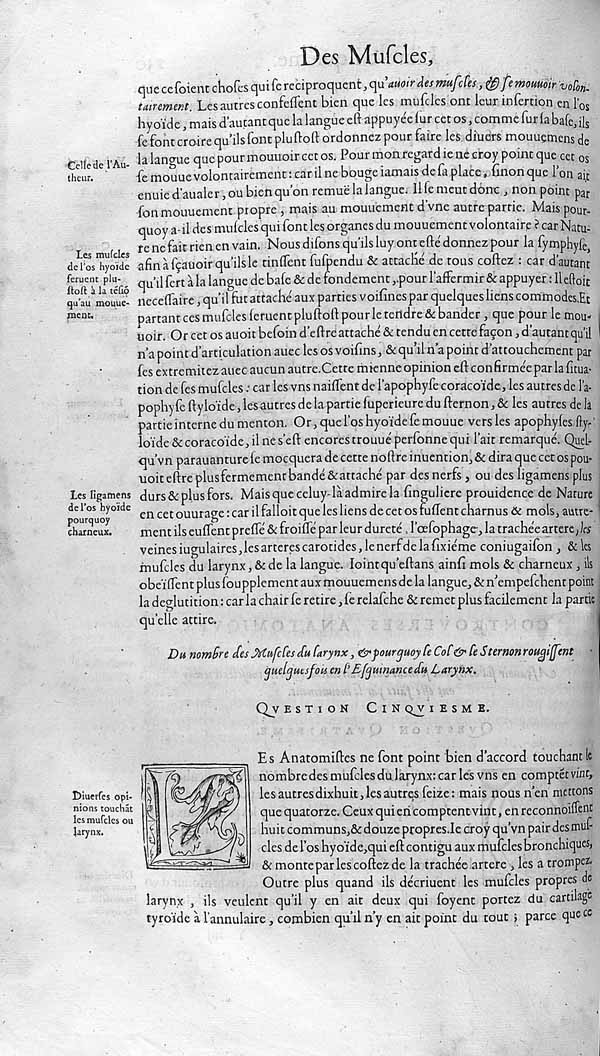 Des Muſcles,
que ce ſoient choſes qui ſe reciproquent, qu'auoir des muſcles, & ſe mouuoir volon-
tairement. Les autres confeſſent bien que les muſcles ont leur inſertion en l'os
hyoïde, mais d'autant que la langue eſt appuyée ſur cet os, comme ſur ſa baſe, ils
ſe font croire qu'ils ſont pluſtoſt ordonnez pour faire les diuers mouuemens de
Celſe de l'Au-
theur.
la langue que pour mouuoir cet os. Pour mon regard ie ne croy point que cet os
ſe mouue volontairement: car il ne bouge iamais de ſa place, ſinon que l'on ait
enuie d'aualer, ou bien qu'on remuë la langue. Il ſe meut donc, non point par
ſon mouuement propre, mais au mouuement d'vne autre partie. Mais pour-
quoy a-il des muſcles qui ſont les organes du mouuement volontaire? car Natu-
Les muſcles
de l'os hyoïde
ſeruent plu-
ſtoſt à la tẽſiõ
qu'au mouue-
ment.
re ne fait rien en vain. Nous diſons qu'ils luy ont eſté donnez pour la ſymphyſe,
afin à ſçauoir qu'ils le tinſſent ſuſpendu & attaché de tous coſtez: car d'autant
qu'il ſert à la langue de baſe & de fondement, pour l'affermir & appuyer: Il eſtoit
neceſſaire, qu'il fut attaché aux parties voiſines par quelques liens commodes. Et
partant ces muſcles ſeruent pluſtoſt pour le tendre & bander, que pour le mou-
uoir. Or cet os auoit beſoin d'eſtre attaché & tendu en cette façon, d'autant qu'il
n'a point d'articulation auec les os voiſins, & qu'il n'a point d'attouchement par
ſes extremitez auec aucun autre. Cette mienne opinion eſt confirmée par la ſitua-
tion de ſes muſcles: car les vns naiſſent de l'apophyſe coracoïde, les autres de l'a-
pophyſe ſtyloïde, les autres de la partie ſuperieure du ſternon, & les autres de la
partie interne du menton. Or, que l'os hyoïde ſe mouue vers les apophyſes ſty-
loïde & coracoïde, il ne s'eſt encores trouué perſonne qui l'ait remarqué. Quel-
qu'vn parauanture ſe mocquera de cette noſtre inuention, & dira que cet os pou-
uoit eſtre plus fermement bandé & attaché par des nerfs, ou des ligamens plus
Les ligamens
de l'os hyoïde
pourquoy
charneux.
durs & plus fors. Mais que celuy-là admire la ſinguliere prouidence de Nature
en cet ouurage: car il falloit que les liens de cet os fuſſent charnus & mols, autre-
ment ils euſſent preſſé & froiſſé par leur dureté, l'œſophage, la trachée artere, les
veines iugulaires, les arteres carotides, le nerf de la ſixiéme coniugaiſon, & les
muſcles du larynx, & de la langue. Ioint qu'eſtans ainſi mols & charneux, ils
obeïſſent plus ſoupplement aux mouuemens de la langue, & n'empeſchent point
la deglutition: car la chair ſe retire, ſe relaſche & remet plus facilement la partie
qu'elle attire.
Du nombre des Muſcles du larynx, & pourquoy le Col & le Sternon rougiſſent
quelques fois en l'Eſquinance du Larynx.
QVESTION CINQVIESME.
LEs Anatomiſtes ne ſont point bien d'accord touchant le
nombre des muſcles du larynx: car les vns en comptẽt vint,
Diuerſes opi-
nions touchãt
les muſcles ou
larynx.
les autres dixhuit, les autres ſeize: mais nous n'en mettons
que quatorze. Ceux qui en comptent vint, en reconnoiſſent
huit communs, & douze propres. Ie croy qu'vn pair des muſ-
cles de l'os hyoïde, qui eſt contigu aux muſcles bronchiques,
& monte par les coſtez de la trachée artere, les a trompez.
Outre plus quand ils décriuent les muſcles propres de
larynx, ils veulent qu'il y en ait deux qui ſoyent portez du cartilage
tyroïde à l'annulaire, combien qu'il n'y en ait point du tout; parce que ce